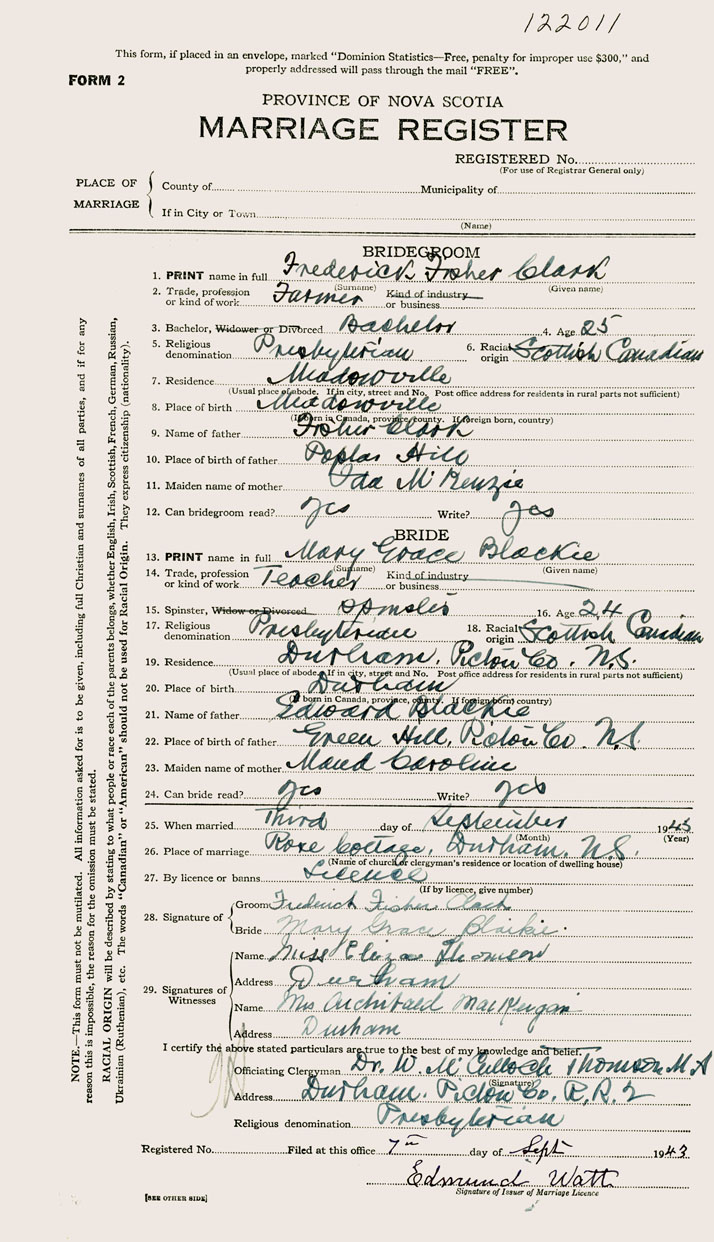 122011
This form, if placed in an envelope, marked "Dominion Statistics—Free, penalty for improper use $300," and
properly addressed will pass through the mail "FREE".
FORM 2
PROVINCE OF NOVA SCOTIA
MARRIAGE REGISTER
REGISTERED No.
(For use of Registrar General only)
PLACE OF MARRIAGE
County of Municipality of
If in City or Town
(Name)
BRIDEGROOM
1. PRINT name in full Frederick Fisher Clark
(Surname) (Given name)
2. Trade, profession or kind of work Farmer Kind of industry or business
3. Bachelor, Widower or Divorced Bachelor 4. Age 25
5. Religious denomination Presbyterian 6. Racial origin Scottish Canadian
7. Residence Meadowville
(Usual place of abode. If in city, street and No. Post office address for residents in rural parts not sufficient)
8. Place of birth Meadowville
(If born in Canada, province, county. If foreign born, country)
9. Name of father Fisher Clark
10. Place of birth of father Poplar Hill
11. Maiden name of mother Ida McKenzie
12. Can bridegroom read? yes Write? yes
BRIDE
13. PRINT name in full Mary Grace Blackie
(Surname) (Given name)
14. Trade, profession or kind of work Teacher Kind of industry or business
15. Spinster, Widow or Divorced spinster 16. Age 24
17. Religious denomination Presbyterian 18. Racial origin Scottish Canadian
19. Residence Durham, Pictou Co. N.S.
(Usual place of abode If in city, street and No. Post office address for residents in rural parts not sufficient)
20. Place of birth Durham
(If born in Canada, province, county. If foreign born, country)
21. Name of father Edward Blackie
22. Place of birth of father Green Hill, Pictou Co. N.S
23. Maiden name of mother Maud Caroline
24. Can bride read? yes Write? yes
25. When married Third day of September 1943
(Month) (Year)
26. Place of marriage Rose Cottage, Durham, N.S.
(Name of church or clergyman's residence or location of dwelling house)
27. By licence or banns Licence
(If by licence, give number)
28. Signature of
Groom Frederick Fisher Clark
Bride Mary Grace Blaikie.
29. Signatures of Witnesses
Name Miss Eliza Thomson
Address Durham
Name Mrs Archibald
Address Durham
I certify the above stated particulars are true to the best of my knowledge and belief.
Officiating Clergyman Dr. W. McCulloch Thomson M.A
(Signature)
Address Durham. Pictou Co. R.R. 2
Religious denomination Presbyterian
Registered No. Filed at this office 7th day of Sept 1943
Edmund Watt
Signature of Issuer of Marriage Licence
[SEE OTHER SIDE]
NOTE.—This form must not be mutilated. All information asked for is to be given, including full Christian and surnames of all parties, and if for any
reason this is impossible, the reason for the omission must be stated.
RACIAL ORIGIN will be described by stating to what people or race each of the parents belongs, whether English, Irish, Scottish, French, German, Russian,
Ukrainian (Ruthenian), etc. The words "Canadian" or "American" should not be used for Racial Origin. They express citizenship (nationality).